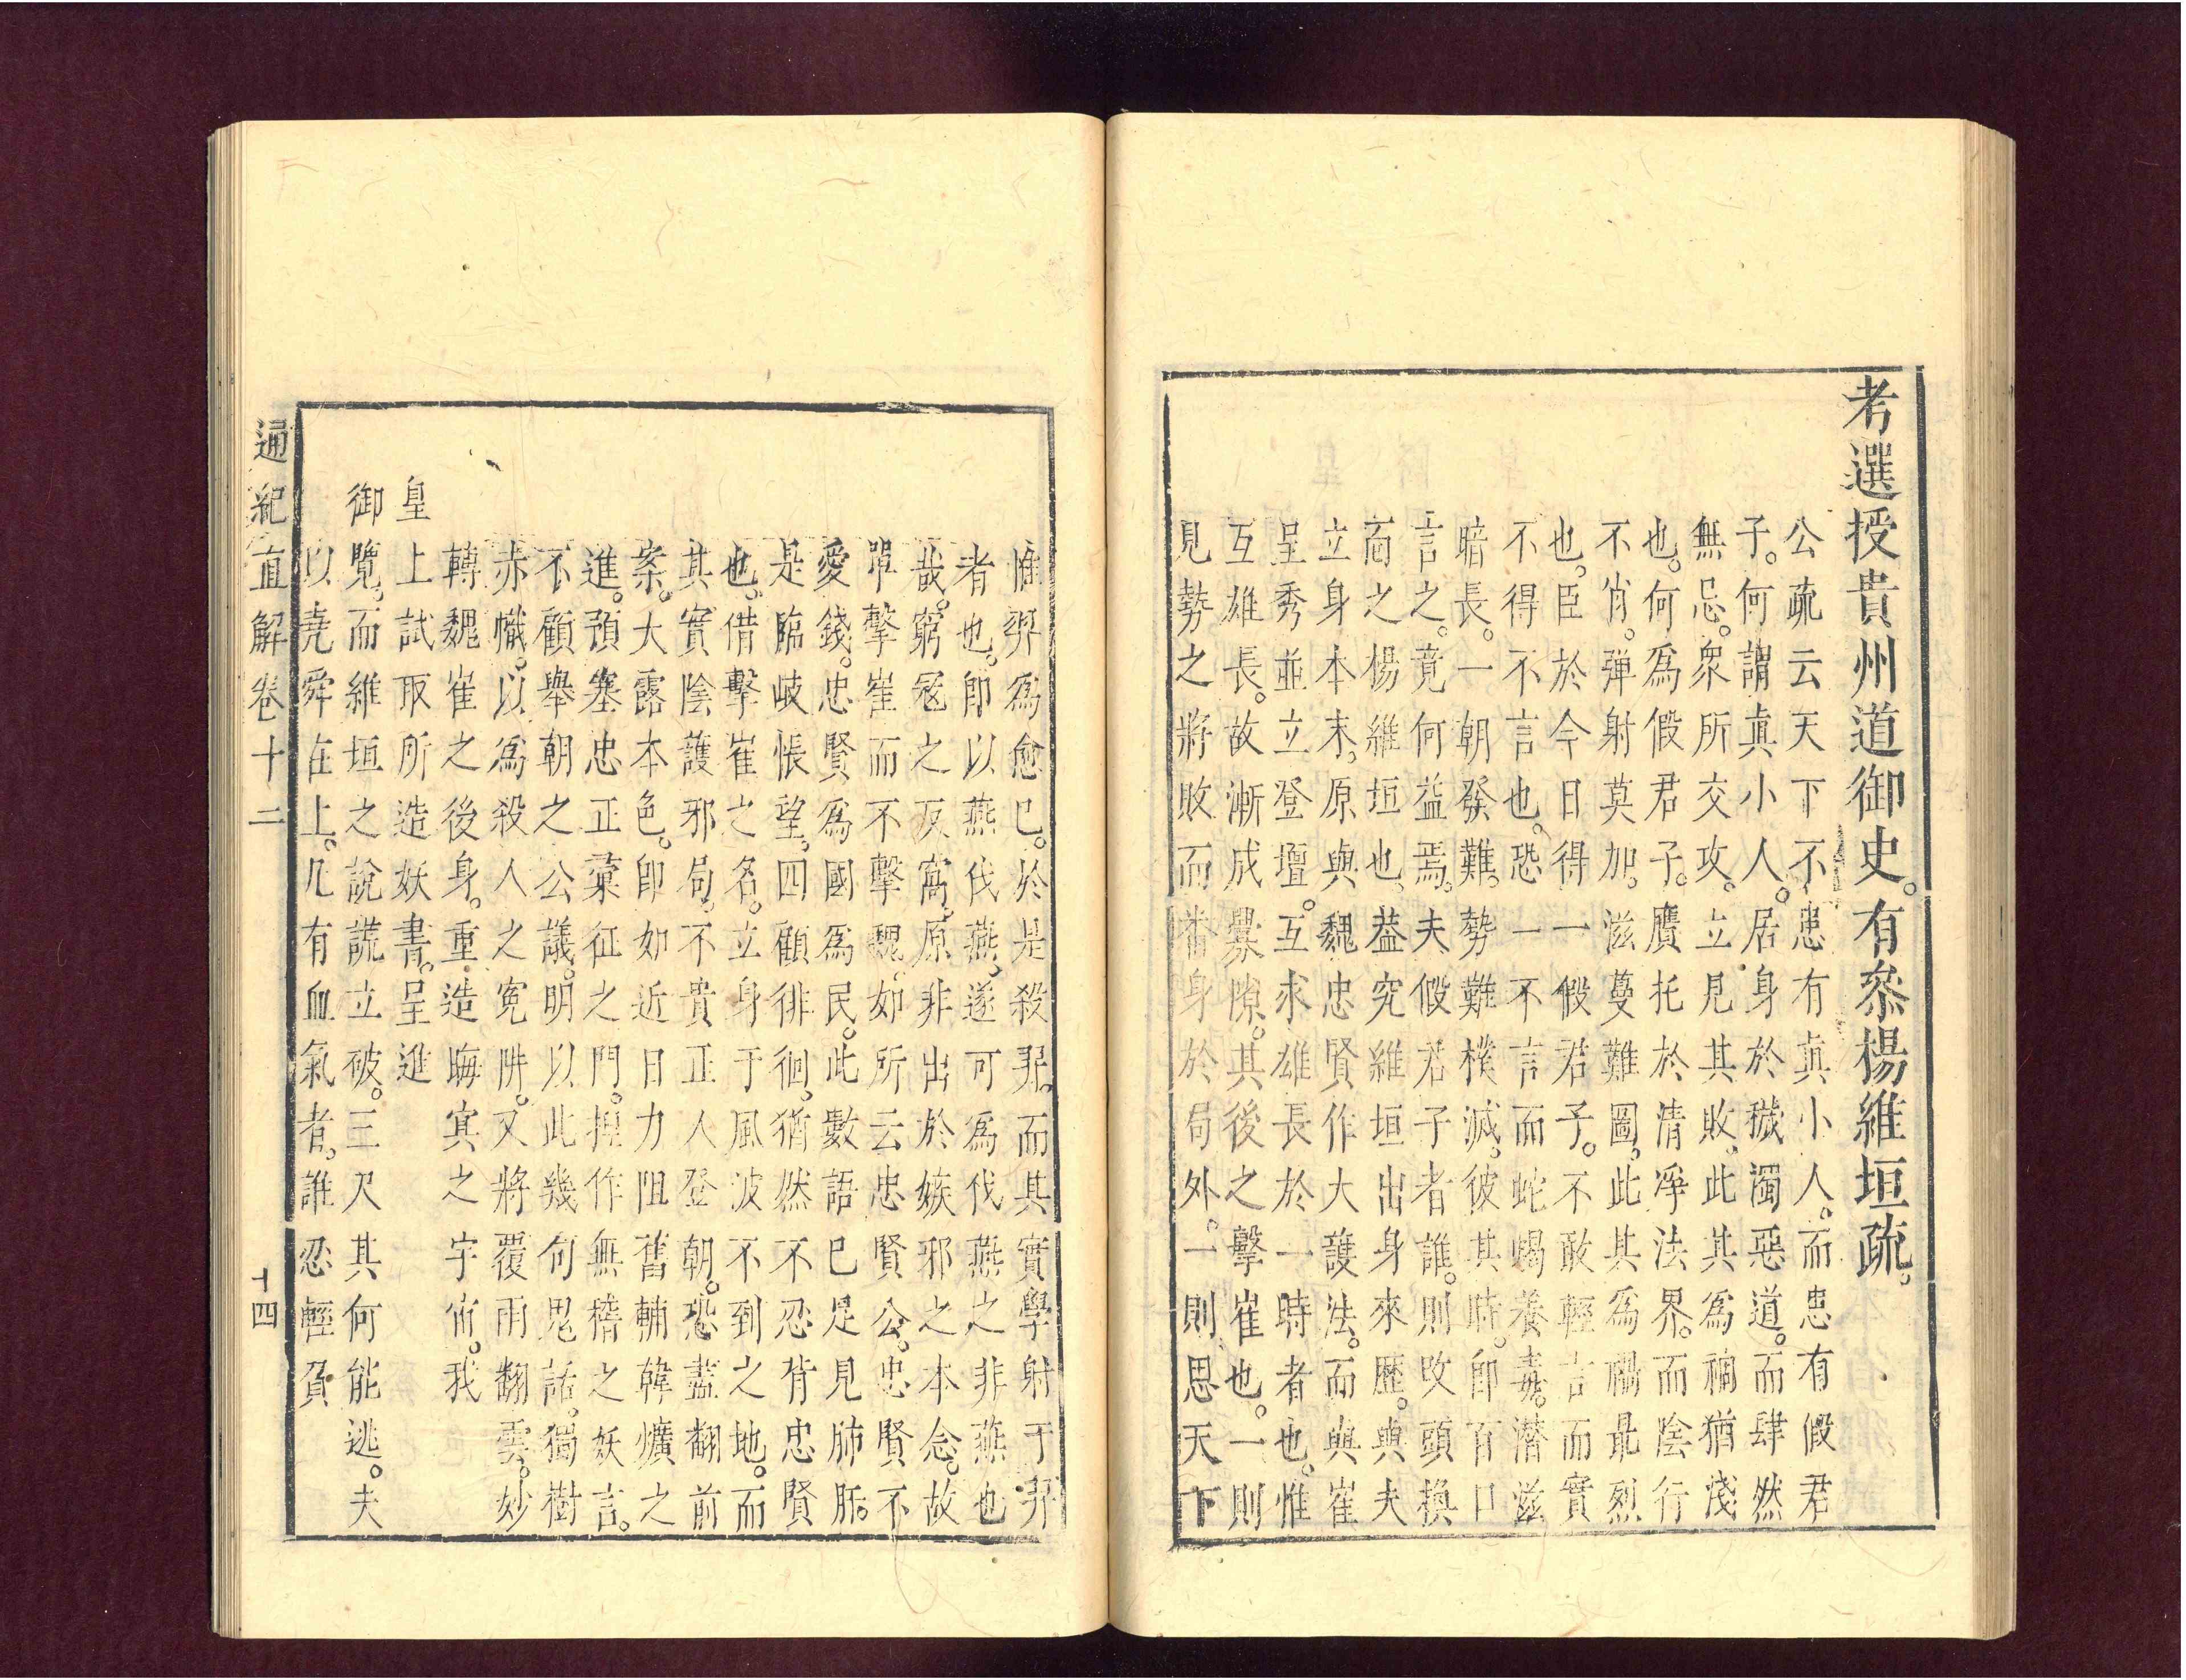 考選授貴州道御史。有叅楊維垣疏。
公疏云天下不患有真小人。而患有假君
子。何謂真小人。居身於穢濁惡道。而肆然
無忌。衆所交攻。立見其敗。此其為禍猶淺
也。何為假君子。贋托於清淨法界。而陰行
不肖。彈射莫加。滋蔓難圖。此其為禍最烈
也。臣於今日得一假君子。不敢輕言而實
不得不言也。恐一不言而蛇蝎養毒。潜滋
暗長。一朝發難。勢難樸滅。彼其時。即百口
言之。竟何益焉。夫假君子者誰。則改頭換
面之楊維垣也。葢究維垣出身來歷。與夫
立身本末。原與魏忠賢作大護法。而與崔
呈秀並立登壇。互求雄長於一時者也。惟
互雄長。故漸成釁隙。其後之擊崔也。一則
見勢之將敗而番身於局外。一則思天下
惟羿為愈已。於是殺羿。而其實學射于羿
者也。即以燕伐燕。遂可為伐燕之非燕也
哉。窮冦之反窩。原非出於嫉邪之本念。故
單擊崔而不擊魏。如所云忠賢公。忠賢不
愛錢。忠賢為國為民。此數語巳足見肺肝。
是臨岐悵望。四顧徘徊。猶然不忍背忠賢
也。借擊崔之名。立身于風波不到之地。而
其實陰護邪局。不貴正人登朝。恐盡翻前
案。大露本色。即如近日力阻舊輔韓爌之
進。預塞忠正彚征之門。揑作無稽之妖言。
不顧舉朝之公議。明以此幾句鬼話。獨樹
赤幟。以為殺人之寃阱。又將覆雨翻雲。妙
轉魏崔之後身。重造晦㝠之宇宙。我
皇上試取所造妖書。呈進
御覽。而維垣之說謊立破。三尺其何能逃。夫
以堯舜在上。凡有血氣者。誰忍輕負
通紀直解卷十二 十四